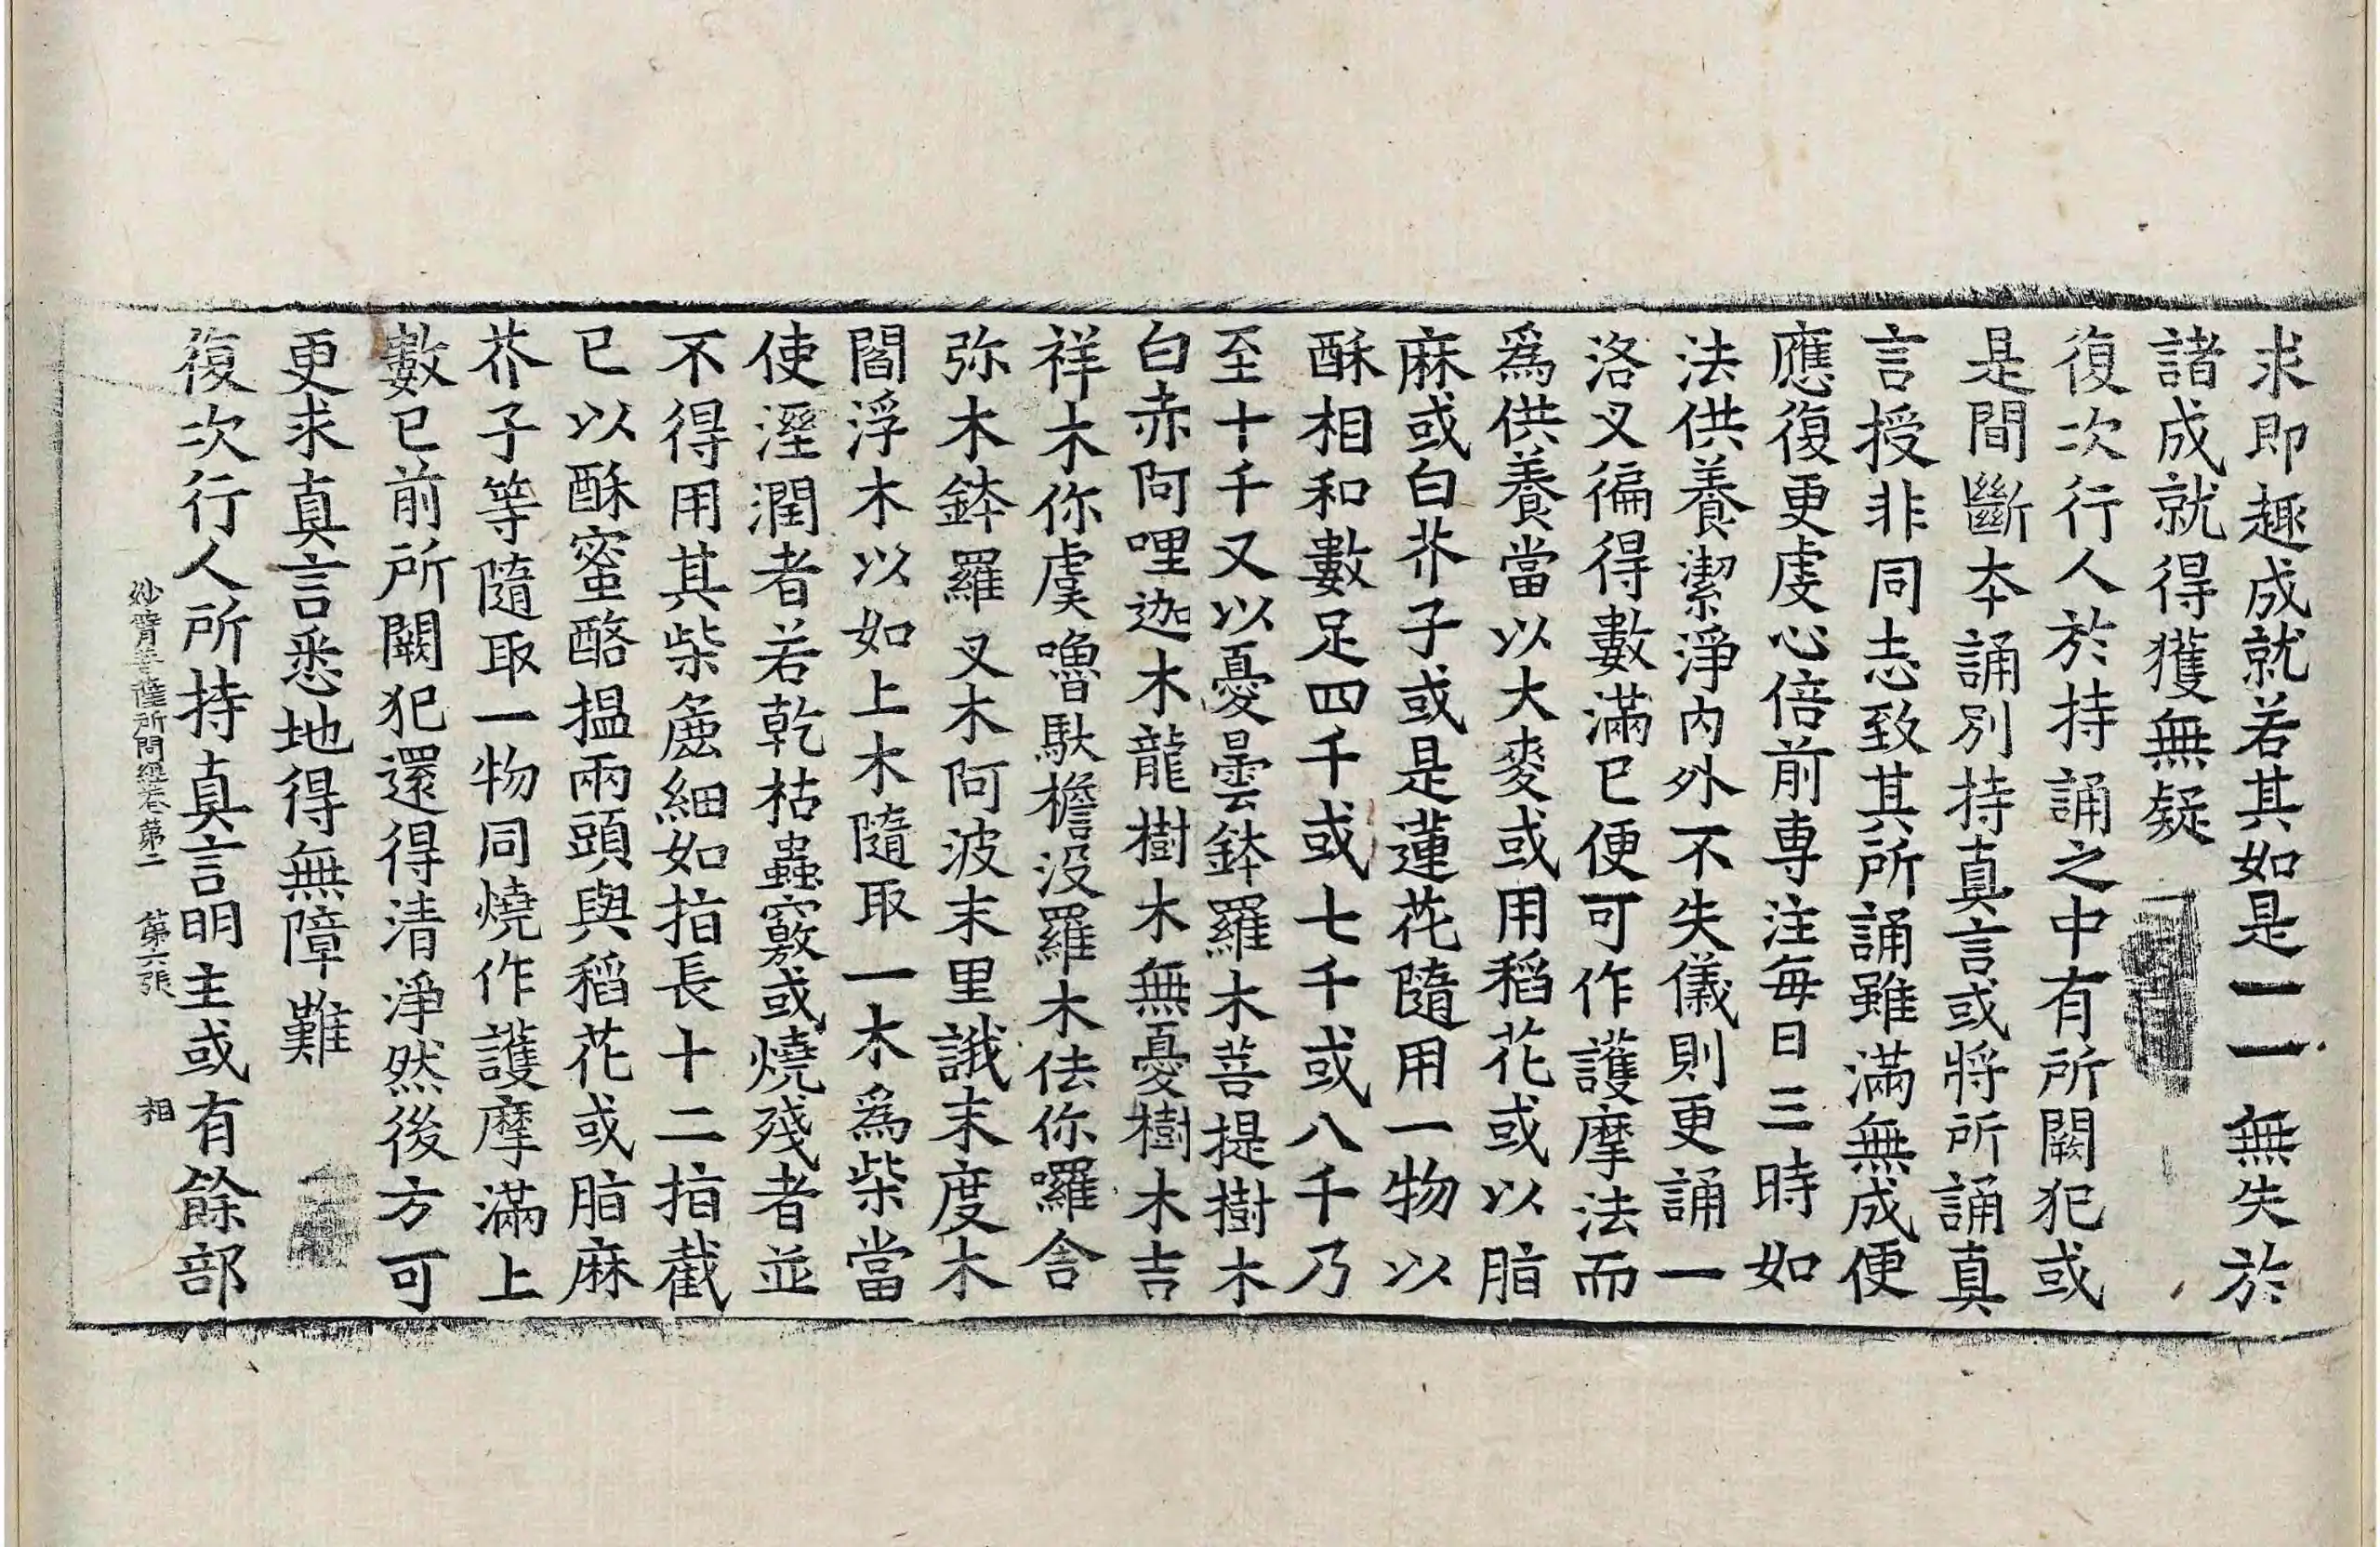 求即趣成就若其如是一一無失於
諸成就得獲無疑
復次行人於持誦之中有所闕犯或
是間斷夲誦別持真言或將所誦真
言授非同志致其所誦雖滿無成便
應復更虔心倍前專注每日三時如
法供養潔淨內外不失儀則更誦一
洛叉徧得數滿已便可作護摩法而
爲供養當以大麥或用稻花或以脂
麻或白芥子或是蓮花隨用一物以
酥相和數足四千或七千或八千乃
至十千又以憂曇鉢羅木菩提樹木
白赤阿哩迦木龍樹木無憂樹木吉
祥木你虞嚕馱檐没羅木佉你囉舍
弥木鉢羅叉木阿波末里誐末度木
閻浮木以如上木隨取一木爲柴當
使溼潤者若乾枯蟲竅或燒殘者並
不得用其柴麁細如指長十二指截
已以酥蜜酪搵兩頭與稻花或脂麻
芥子等隨取一物同燒作護摩滿上
數已前所闕犯還得清淨然後方可
更求真言悉地得無障難
復次行人所持真言明主或有餘部
妙臂菩薩所問經卷第二 第六張 相